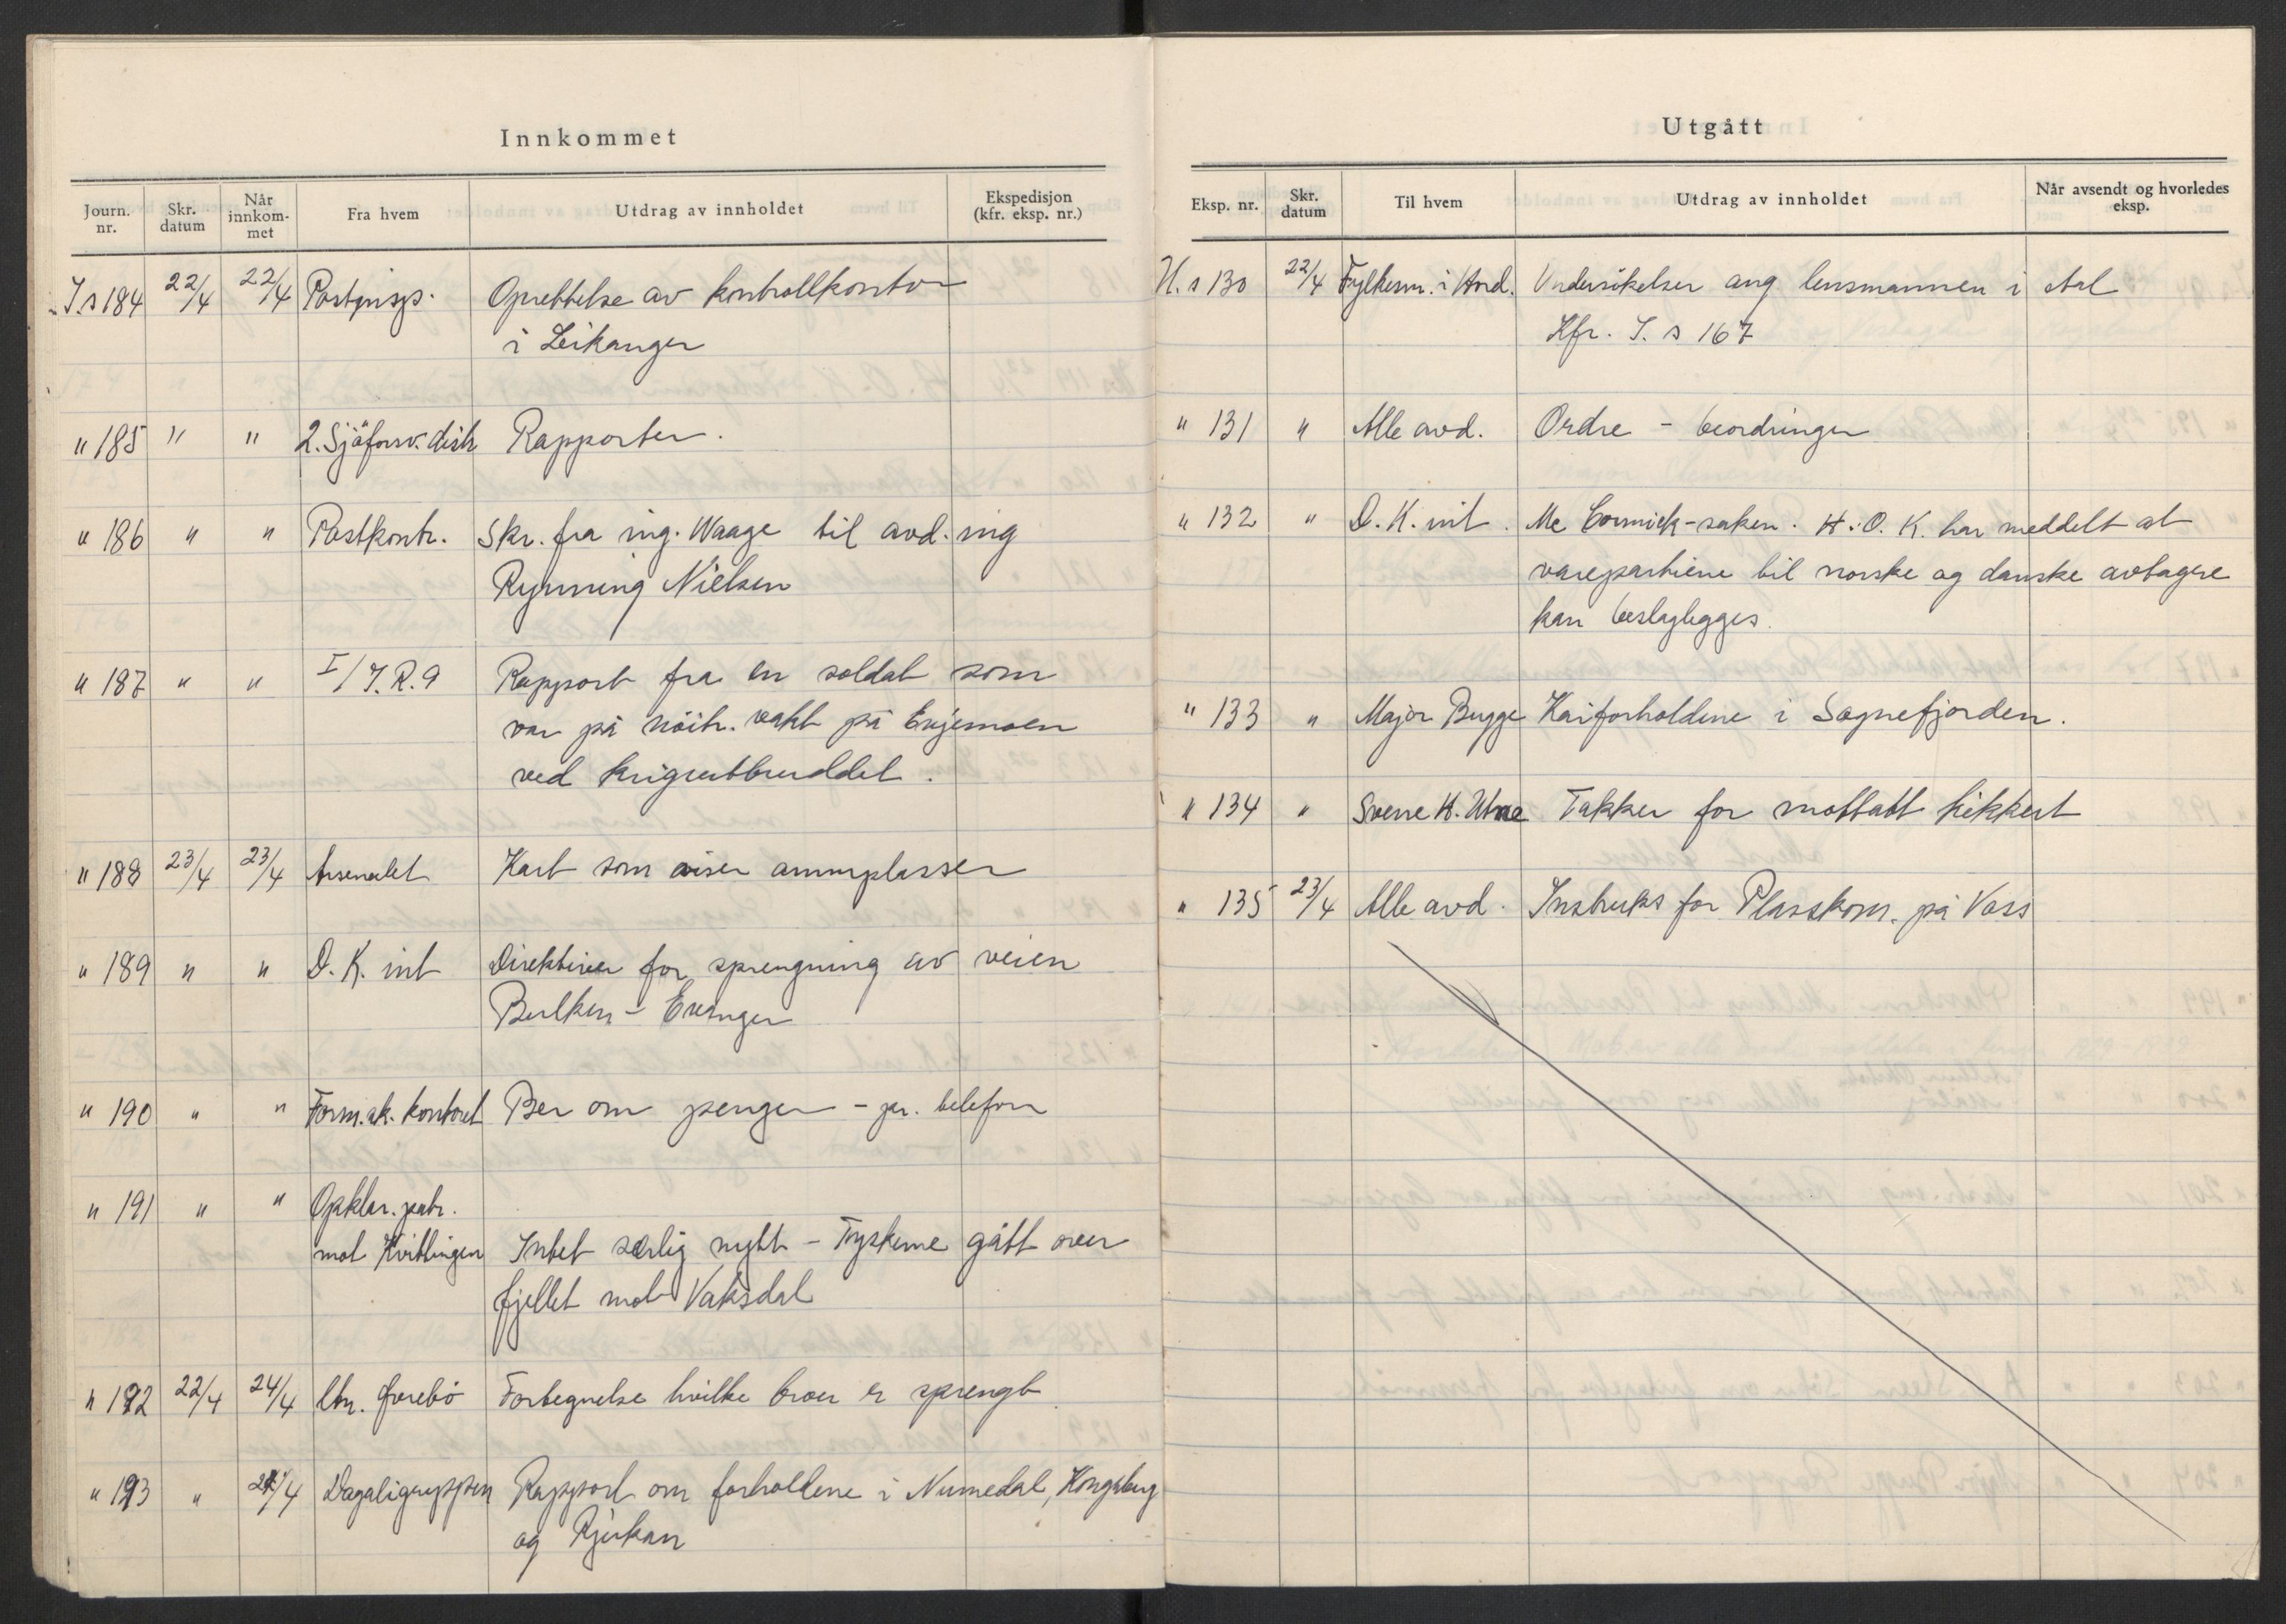 Innkommet
Journ. nr. | Skr. datum | Når innkom-met | Fra hvem | Utdrag av innholdet | Ekspedisjon (kfr. eksp. nr.)
J. s 184 22/4 22/4 Postinsp. Oprettelse av kontrollkontor
i Leikanger
" 185 " " 2. Sjöforsv. distr Rapporter.
" 186 " " Postkontr. Skr. fra ing. Waage til avd. ing
Rynning Nielsen
" 187 " " I/J.R. 9 Rapport fra en soldat som
var på nöitr. vakt på Evjemoen
ved krigsutbruddet.
" 188 23/4 23/4 Arsenalet Kart som viser ammplasser
" 189 " " D. K. int Direktiver for sprengning av veien
Bulken - Evanger
" 190 " " Form. ak. kontoret Ber om penger - pr. telefon
" 191 " " Opklar. patr.
mot Kvitlingen Intet særlig nytt - Tyskerne gått over
fjellet mot Vaksdal
" 192 22/4 24/4 Ltn. Forebö Fortegnelse hvilke broer er sprengt
" 193 " 24/4 Dagaligruppen Rapport om forholdene i Numedal, Kongsberg
og Rjukan
Utgått
Eksp. nr. | Skr. datum | Til hvem | Utdrag av innholdet | Når avsendt og hvorledes eksp.
U. s 130 22/4 Fylkesm. i Hord. Undersökelser ang lensmannen i Aal
Kfr. J. s 167
" 131 " Alle avd. Ordre - beordringer
" 132 " D. K. int. Mc Cormick-saken. H. O. K. har meddelt at
varepartiene til norske og danske avtagere
kan beslaglegges.
" 133 " Major Bugge Kaiforholdene i Sognefjorden.
" 134 " Sverre H. Utne Takker for mottatt kikkert
" 135 23/4 Alle avd. Instruks for Plasskom. på Voss